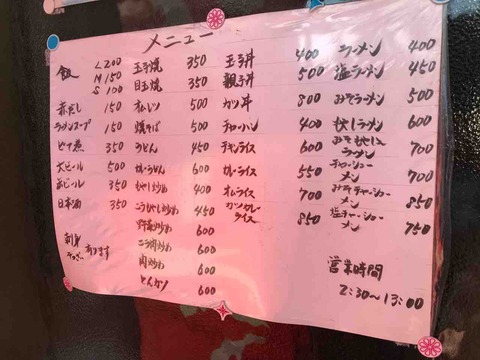 メニュー
飯 L 200
M 150
S 100
赤だし 150
ラーメンスープ 150
ピリ煮 350
大ビール 500
缶ビール 350
日本酒 350
刺身
あります
玉子焼 350
目玉焼 350
ホルモン 500
焼そば 500
うどん 450
カレーうどん 600
もやし炒め 400
ニラもやし炒め 450
野菜炒め 600
ニラ肉炒め 600
肉炒め 600
とんかつ 600
玉子丼 400
親子丼 500
カツ丼 800
チャーハン 400
チキンライス 600
カレーライス 550
オムライス 700
カツカレー
ライス 850
ラーメン 400
塩ラーメン 450
みそラーメン 500
もやしラーメン 600
みそもやし
ラーメン 700
チャーシュー
メン 700
みそチャーシュー
メン 850
塩チャーシュー
メン 750
営業時間
2:30~13:00